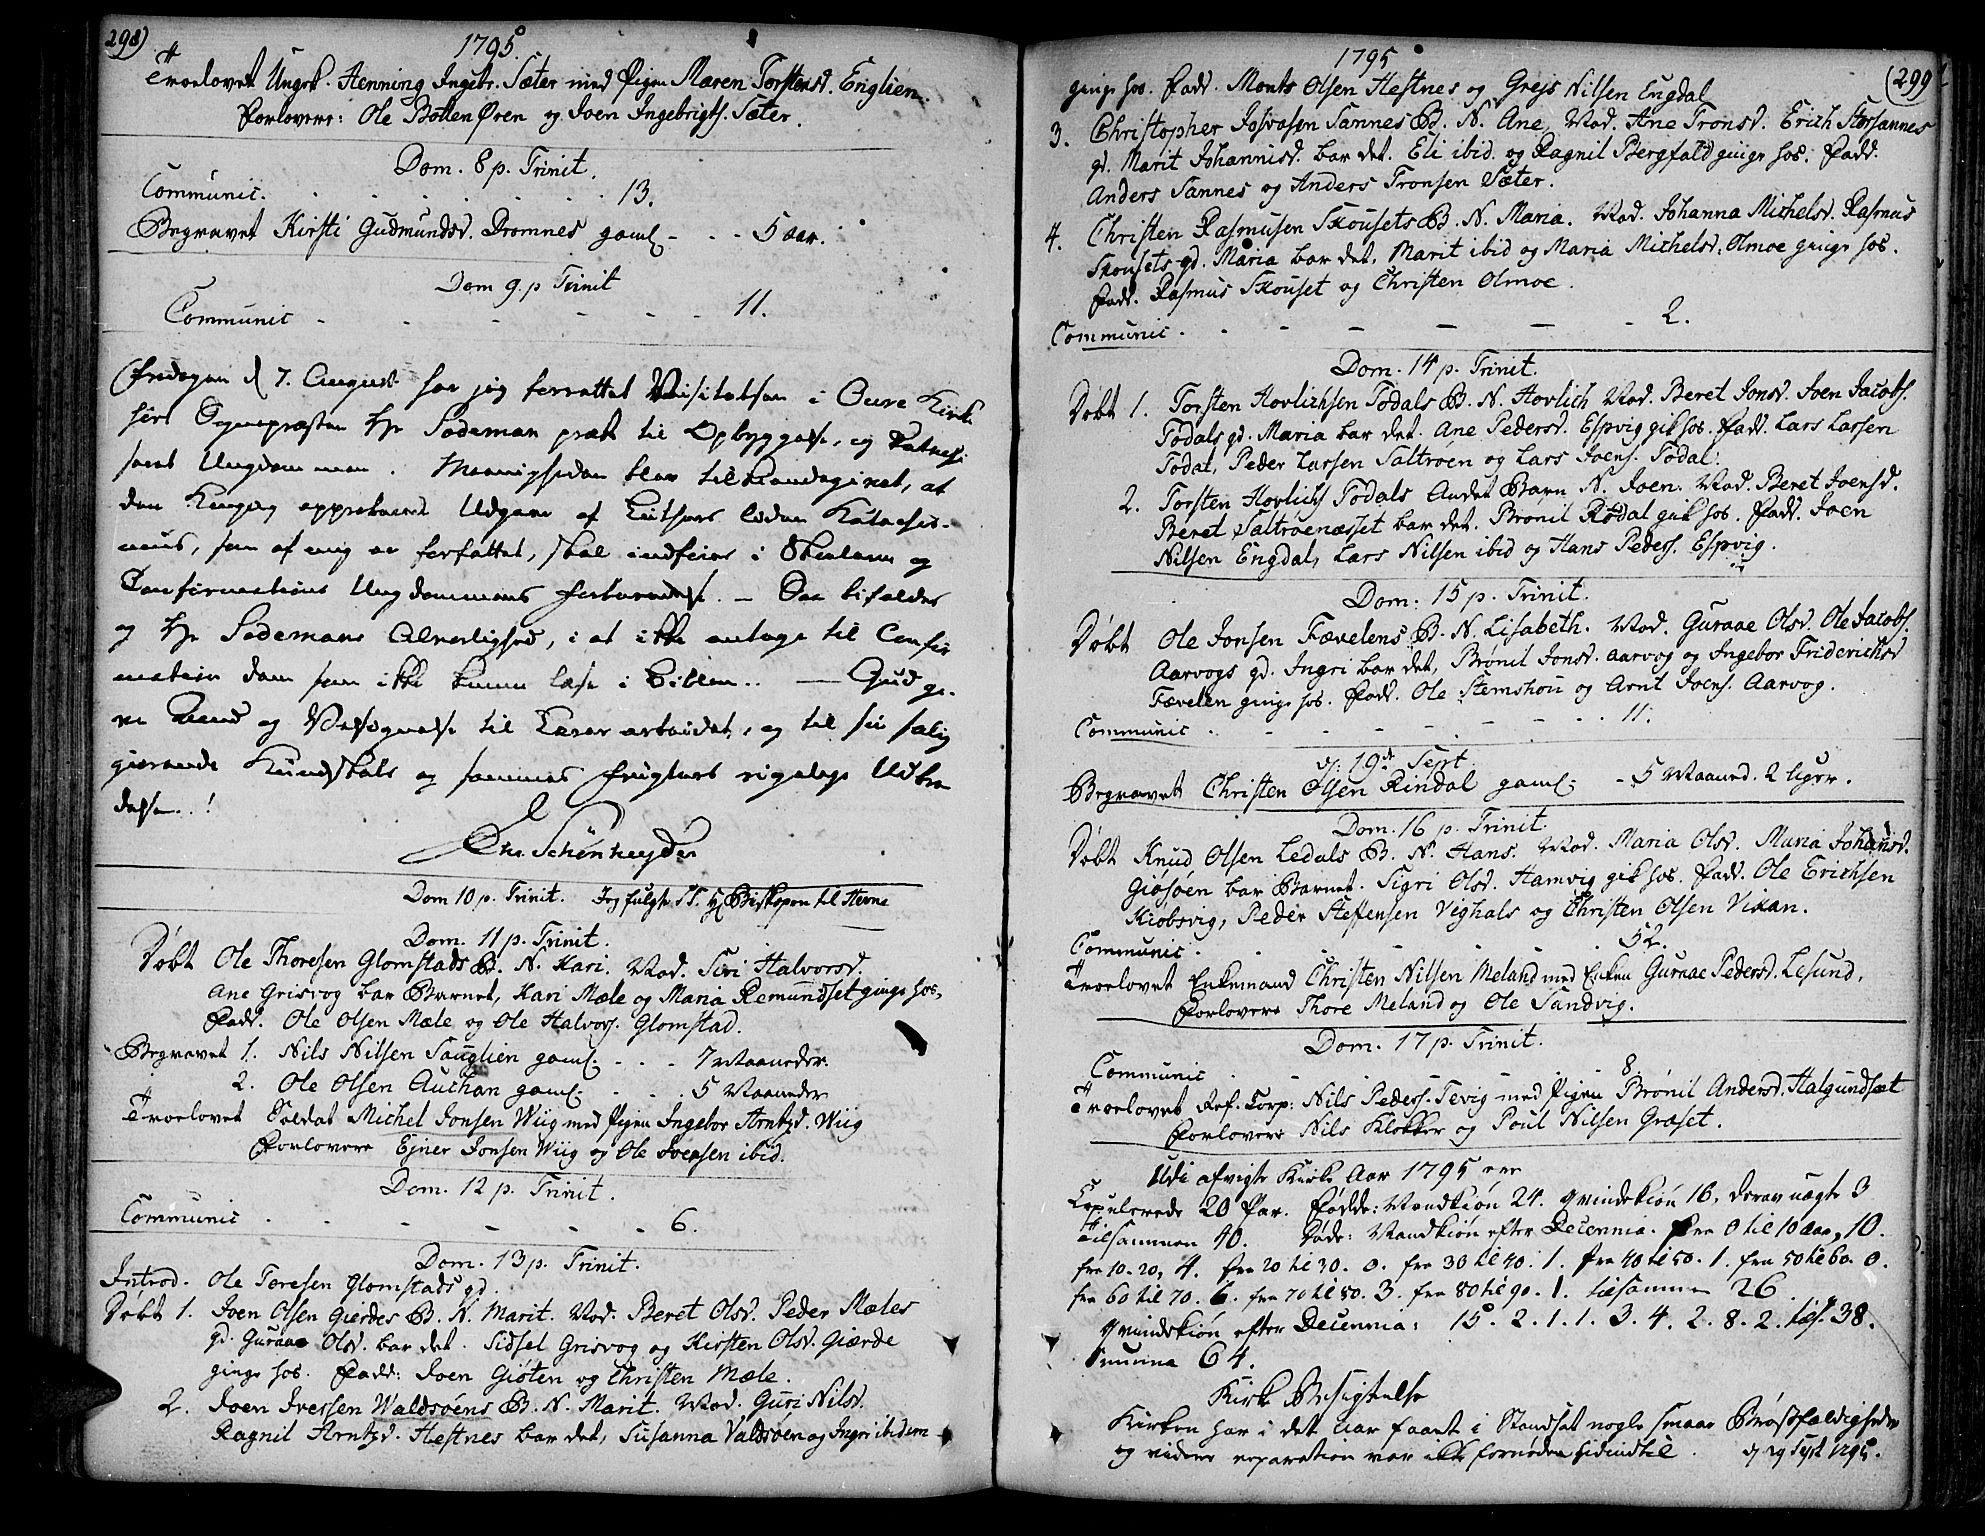 298)
1795.
Troelovet Ungk. Henning Ingebr. Sæter med Pigen Maren Torstensd. Englien.
Forlovere: Ole Botten Øren og Joen Ingebrigts. Sæter.
Dom. 8 p. Trinit.
Communic. . . . . . . 13.
Begravet Kirsti Gudmundsd. Dromnes gaml - - - 5 aar.
Dom 9. p Trinit
Communic - - - - - - 11.
Fredagen d 7. August har jeg forrettet Visitatsen i Oure Kirke
hvor Sognepræsten Hr Sodeman præk til Opbyggelse, og Katechi
seret Ungdommen. Menigheden blev tilkiendegivet, at
den Kongelig approberede Udgave af Luthers liden Kateches-
mus, som af mig er forfattet, skal indføres i Skolerne og
Confirmations Ungdommens Forberedelse. — Saa bifaldes
og Hr Sodemans Alvorlighed, i at ikke antage til Confir
mation dem som ikke kunne læse i Bibelen. — Gud gi-
ve Naade og Velsignelse til Lærer arbeidet, og til sin salig
giørende Kundskabs og sammes Frugters rigelige Udbre
delse..!
Chr. Schönheyder
Dom 10 p. Trinit. Jeg fulgte Hr Biskopen til Hevne
Dom. 11 p. Trinit.
Døbt Ole Thoresen Glomstads B. N. Kari. Mod. Siri Halvorsd.
Ane Grisvog bar Barnet, Kari Mæle og Maria Remundset ginge hos,
Fadd. Ole Olsen Mæle og Ole Halvors. Glomstad.
Begravet 1. Nils Nilsen Sauglien gaml. . . . 7 Maaneder.
2. Ole Olsen Aukan gaml. . . . . 5 Maaneder
Troelovet Soldat Michel Jonsen Wiig med Pigen Ingebor Arntzd. Wiig
Forlovere Ejner Jonsen Wiig og Ole Iversen ibid.
Dom. 12 p. Trinit.
Communic . . . - - - - 6.
Dom. 13 p. Trinit.
Introd. Ole Toresen Glomstads gd.
Døbt 1. Joen Olsen Gierdes B. N. Marit. Mod. Beret Olsd. Peder Mæles
gd. Guraae Olsd. bar det. Sidsel Grisvog og Kirsten Olsd. Giærde
ginge hos. Fadd: Joen Giøten og Christen Mæle.
2. Joen Iversen Waldsøens B. N. Marit. Mod. Guri Nilsd.
Ragnil Arntzd. Hestnes bar det, Susanna Valdsøen og Ingri ibidem
1795
(299
ginge hos. Fadd. Monts Olsen Hestnes og Grejs Nilsen Engdal
3. Christopher Josvasen Sannes B. N. Ane, Mod. Ane Tronsd. Erich Storsannes
gd. Marit Johannisd. bar det. Eli ibid. og Ragnil Bergfald ginge hos: Fadd.
Anders Sannes og Anders Tronsen Sæter.
4. Christen Rasmusen Skousets B. N. Maria. Mod. Johanna Michelsd. Rasmus
Skousets gd. Maria bar det. Marit ibid og Maria Michelsd. Olmoe ginge hos.
Fadd. Rasmus Skouset og Christen Olmoe.
Communic . - - - - - - 2.
Dom. 14 p. Trinit.
Døbt 1. Torsten Hovlichsen Todals B. N. Hovlich Mod. Beret Jonsd. Joen Jacobs.
Todals gd. Maria bar det. Ane Pedersd. Espvig gik hos. Fadd. Lars Larsen
Todal, Peder Larsen Saltroen og Lars Joens. Todal.
2. Torsten Hovlichs Todals Andet Barn N. Joen. Mod. Beret Joensd.
Beret Saltroenæsset bar det. Bronil Rodal gik hos. Fadd. Joen
Nilsen Engdal, Lars Nilsen ibid og Hans Peders. Espvig.
Dom: 15 p. Trinit.
Døbt Ole Jonsen Fævelens B. N. Lisabeth. Mod. Guraae Olsd. Ole Jacobs.
Aarvogs gd. Ingri bar det, Brønil Jonsd. Aarvog og Ingebor Friderichsd
Fævelen ginge hos. Fadd. Ole Stemshou og Arnt Joens. Aarvog.
Communic . . - - - - - . . 11.
d: 19de Sept.
Begravet Christen Olsen Rindal gaml: - 5 Maaned. 2 Uger.
Dom. 16 p. Trinit.
Døbt Knud Olsen Ledals B. N. Hans. Mod. Maria Olsd. Maria Johansd.
Giøsøen bar Barnet. Sigri Olsd. Hamvig gik hos. Fadd. Ole Erichsen
Kiøbsvig, Peder Steffensen Vighals og Christen Olsen Vikan.
Communic . . . . . . 52.
Troelovet Enkemand Christen Nilsen Meland med Enken Guraae Pedersd. Lesund,
Forlovere Thore Meland og Ole Sandvig.
Dom. 17 p. Trinit.
Communic . . . . . . 8
Troelovet Ref. Corp: Nils Peders. Tevig med Pigen Brønil Andersd. Halgundsæt
Forlovere Nils Klokker og Poul Nilsen Græset.
Udi afvigte Kirke Aar 1795 ere
Copulerede 20 Par. Fødde: Mandkiøn 24. Qvindekiøn 16, derav uægte 3
Tilsammen 40. Døde: Mandkiøn efter Decennia. Fra 0 til 10 aar, 10.
fra 10. 20, 4. fra 20 til 30. 0. fra 30 til 40. 1. fra 40 til 50. 1. fra 50 til 60. 0.
fra 60 til 70. 6. fra 70 til 80. 3. fra 80 til 90. 1. tilsammen 26.
Qvindekiøn efter Decennia: 15. 2. 1. 1. 3. 4. 2. 8. 2. tils. 38.
Summa 64.
Kirke Besigtelse
Kirken har i det Aar faaet i Standsat nogle smaae Brøstfældigheder
og videre reparation var ikke fornøden hidindtil. d 29 Sept 1795.